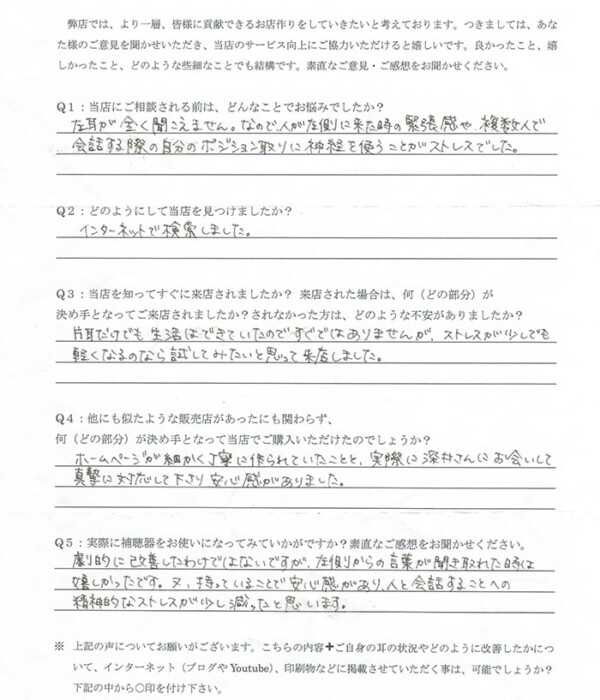 弊店では、より一層、皆様に貢献できるお店作りをしていきたいと考えております。つきましては、あな
た様のご意見を聞かせいただき、当店のサービス向上にご協力いただけると嬉しいです。良かったこと、嬉
しかったこと、どのような些細なことでも結構です。素直なご意見・ご感想をお聞かせください。
Q1：当店にご相談される前は、どんなことでお悩みでしたか？
左耳が全く聞こえません。なので人が左側に来た時の緊張感や、複数人で
会話する際の自分のポジション取りに神経を使うことがストレスでした。
Q2：どのようにして当店を見つけましたか？
インターネットで検索しました。
Q3：当店を知ってすぐに来店されましたか？ 来店された場合は、何（どの部分）が
決め手となってご来店されましたか？されなかった方は、どのような不安がありましたか？
片耳だけでも生活はできていたのですぐではありませんが、ストレスが少しでも
軽くなるのなら試してみたいと思って来店しました。
Q4：他にも似たような販売店があったにも関わらず、
何（どの部分）が決め手となって当店でご購入いただけたのでしょうか？
ホームページが細かく丁寧に作られていたことと、実際に深井さんにお会いして
真摯に対応して下さり安心感がありました。
Q5：実際に補聴器をお使いになってみていかがですか？素直なご感想をお聞かせください。
劇的に改善したわけではないですが、左側からの言葉が聞き取れた時は
嬉しかったです。又、持っていることで安心感があり、人と会話することへの
精神的なストレスが少し減ったと思います。
※ 上記の声についてお願いがございます。こちらの内容＋ご自身の耳の状況やどのように改善したかにつ
いて、インターネット（ブログや Youtube）、印刷物などに掲載させていただく事は、可能でしょうか？
下記の中から○印を付け下さい。